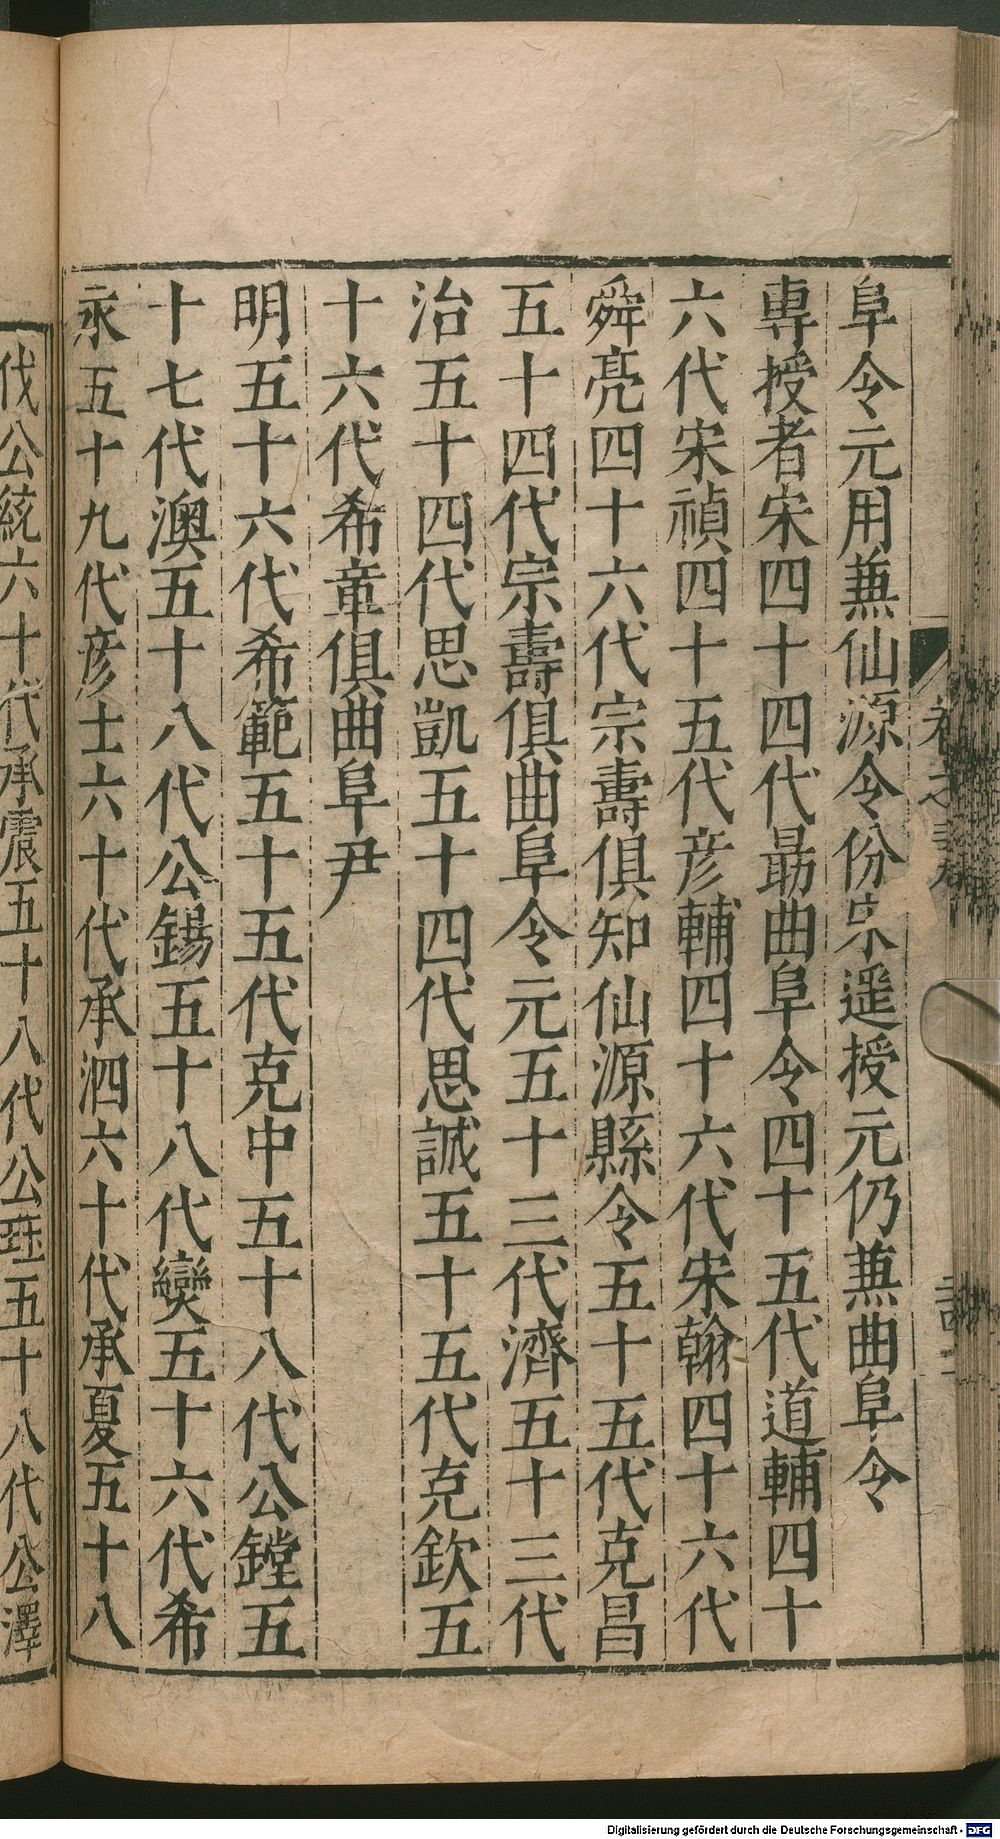 阜令元用兼仙源令份宋遥授元仍兼曲阜令
專授者宋四十四代勗曲阜令四十五代道輔四十
六代宋禎四十五代彦輔四十六代宋翰四十六代
舜亮四十六代宗壽俱知仙源縣令五十五代克昌
五十四代宗壽俱曲阜令元五十三代濟五十三代
治五十四代思凱五十四代思誠五十五代克欽五
十六代希章俱曲阜尹
明五十六代希範五十五代克中五十八代公鏜五
十七代澳五十八代公錫五十八代爕五十六代希
永五十九代彦士六十代承泗六十代承夏五十八
代公統六十代承震五十八代公珏五十八代公澤
Digitalisierung gefördert durch die Deutsche Forschungsgemeinschaft - DFG